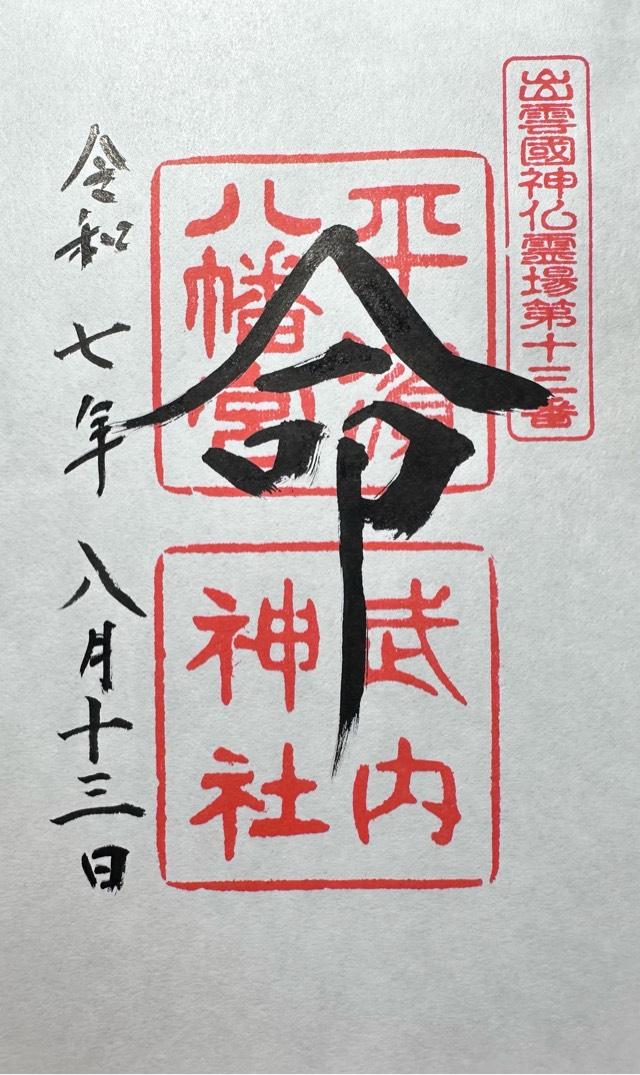 出雲國神仏霊場第十三番
平濱
八幡宮
命
武内
神社
令和七年八月十三日